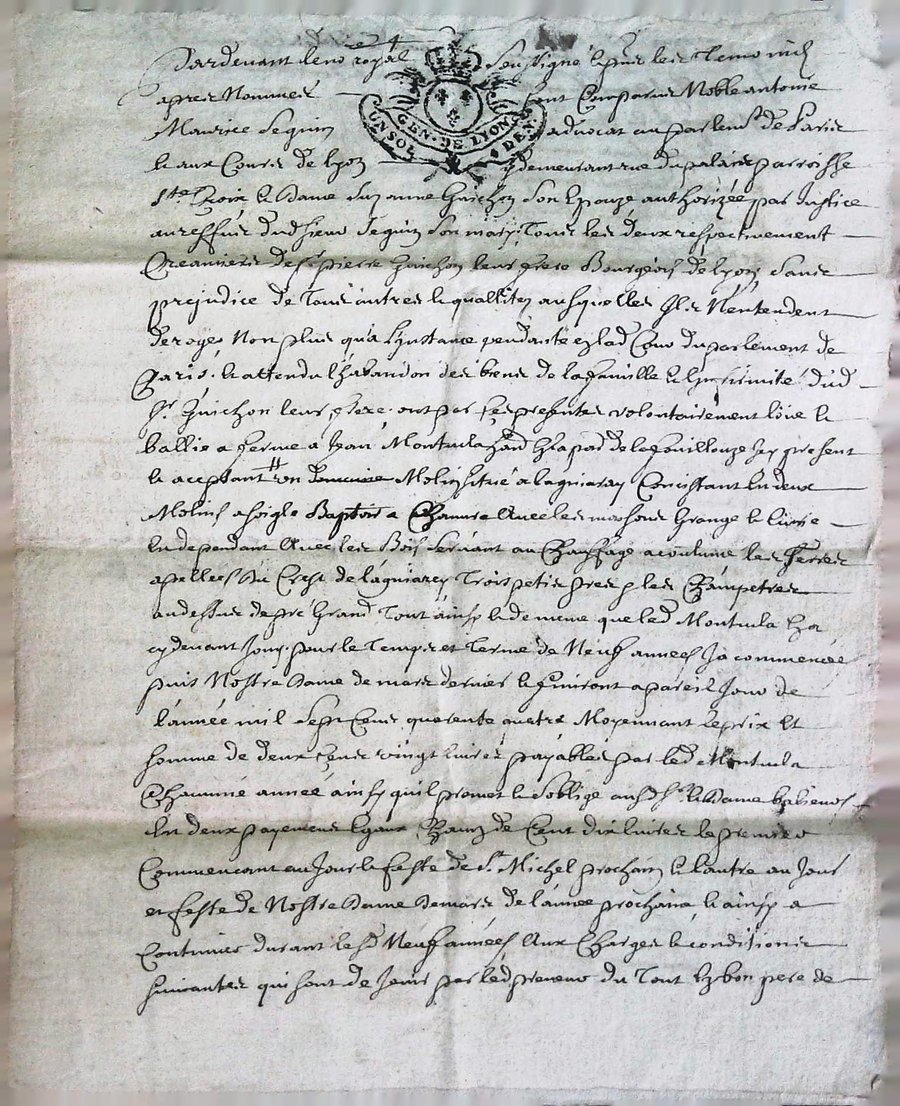 Pardevant le no.re royal soussigné et pnt les temoins
apres Nommés sont Comparus Noble antoine
GEN. DE LYON
UN SOL DEN
Maurice Seguin advocat au parlem.t de Paris
et aux Cours de Lyon y demeurant rue du palais parroisse
S.te Croix et Dame Suzanne Guichon son Epouze authorizée par Justice
au reffus dud sieur Seguin son mary, Tous les deux respectivement
Creanciers de S.r pierre Guichon leur frere Bourgeois de Lyon, Sans
prejudice de Tous autres et quallites ausquelles Ils N'entendent
deroger Non plus qu'a L'instance pendante en lad Cour du parlement de
Paris, et attendu l'habandon des biens de la famille et l'infirmité dud
S.r Guichon leur frere ont par ses presentes volontairement loüé et
ballié a ferme a Jean Montuela de la fouillouze Icy present
et acceptant un domaine Molin situé a lagniaray Consistant En deux
Molins a soigle Baptoir a Chanvre Avec les maisons Grange et Curie
En dependant Avec les Bois servant au Chauffage acoutumé les Terres
apellees du Crest de lagniarey Trois petis pres et les Champetres
au dessus de pré Grand Tout ainsy et de meme que led Montuela En a
cy devant Jouy pour le Temps et Terme de Neuf années Ja commencée
puis Nostre Dame de mars dernier et finiront a pareil Jour de
l'année mil Sept Cens quarente quatre Moyennant le prix Et
somme de deux Cens vingt livres payables par led Montuela
Chacunne année ainsy quil promet et s'obblige ausd S.r et Dame
En deux payemens Egaux Chacun de Cent dix livres le premier
Commencant au Jour et feste de S.t Michel prochain et l'autre au Jour
et feste de Nostre Dame de mars de l'année prochaine et ainsy a
Continuer durant lesd Neuf années Aux Charges et conditions
suivantes qui sont de Jouir par led preneur du Tout En bon pere de